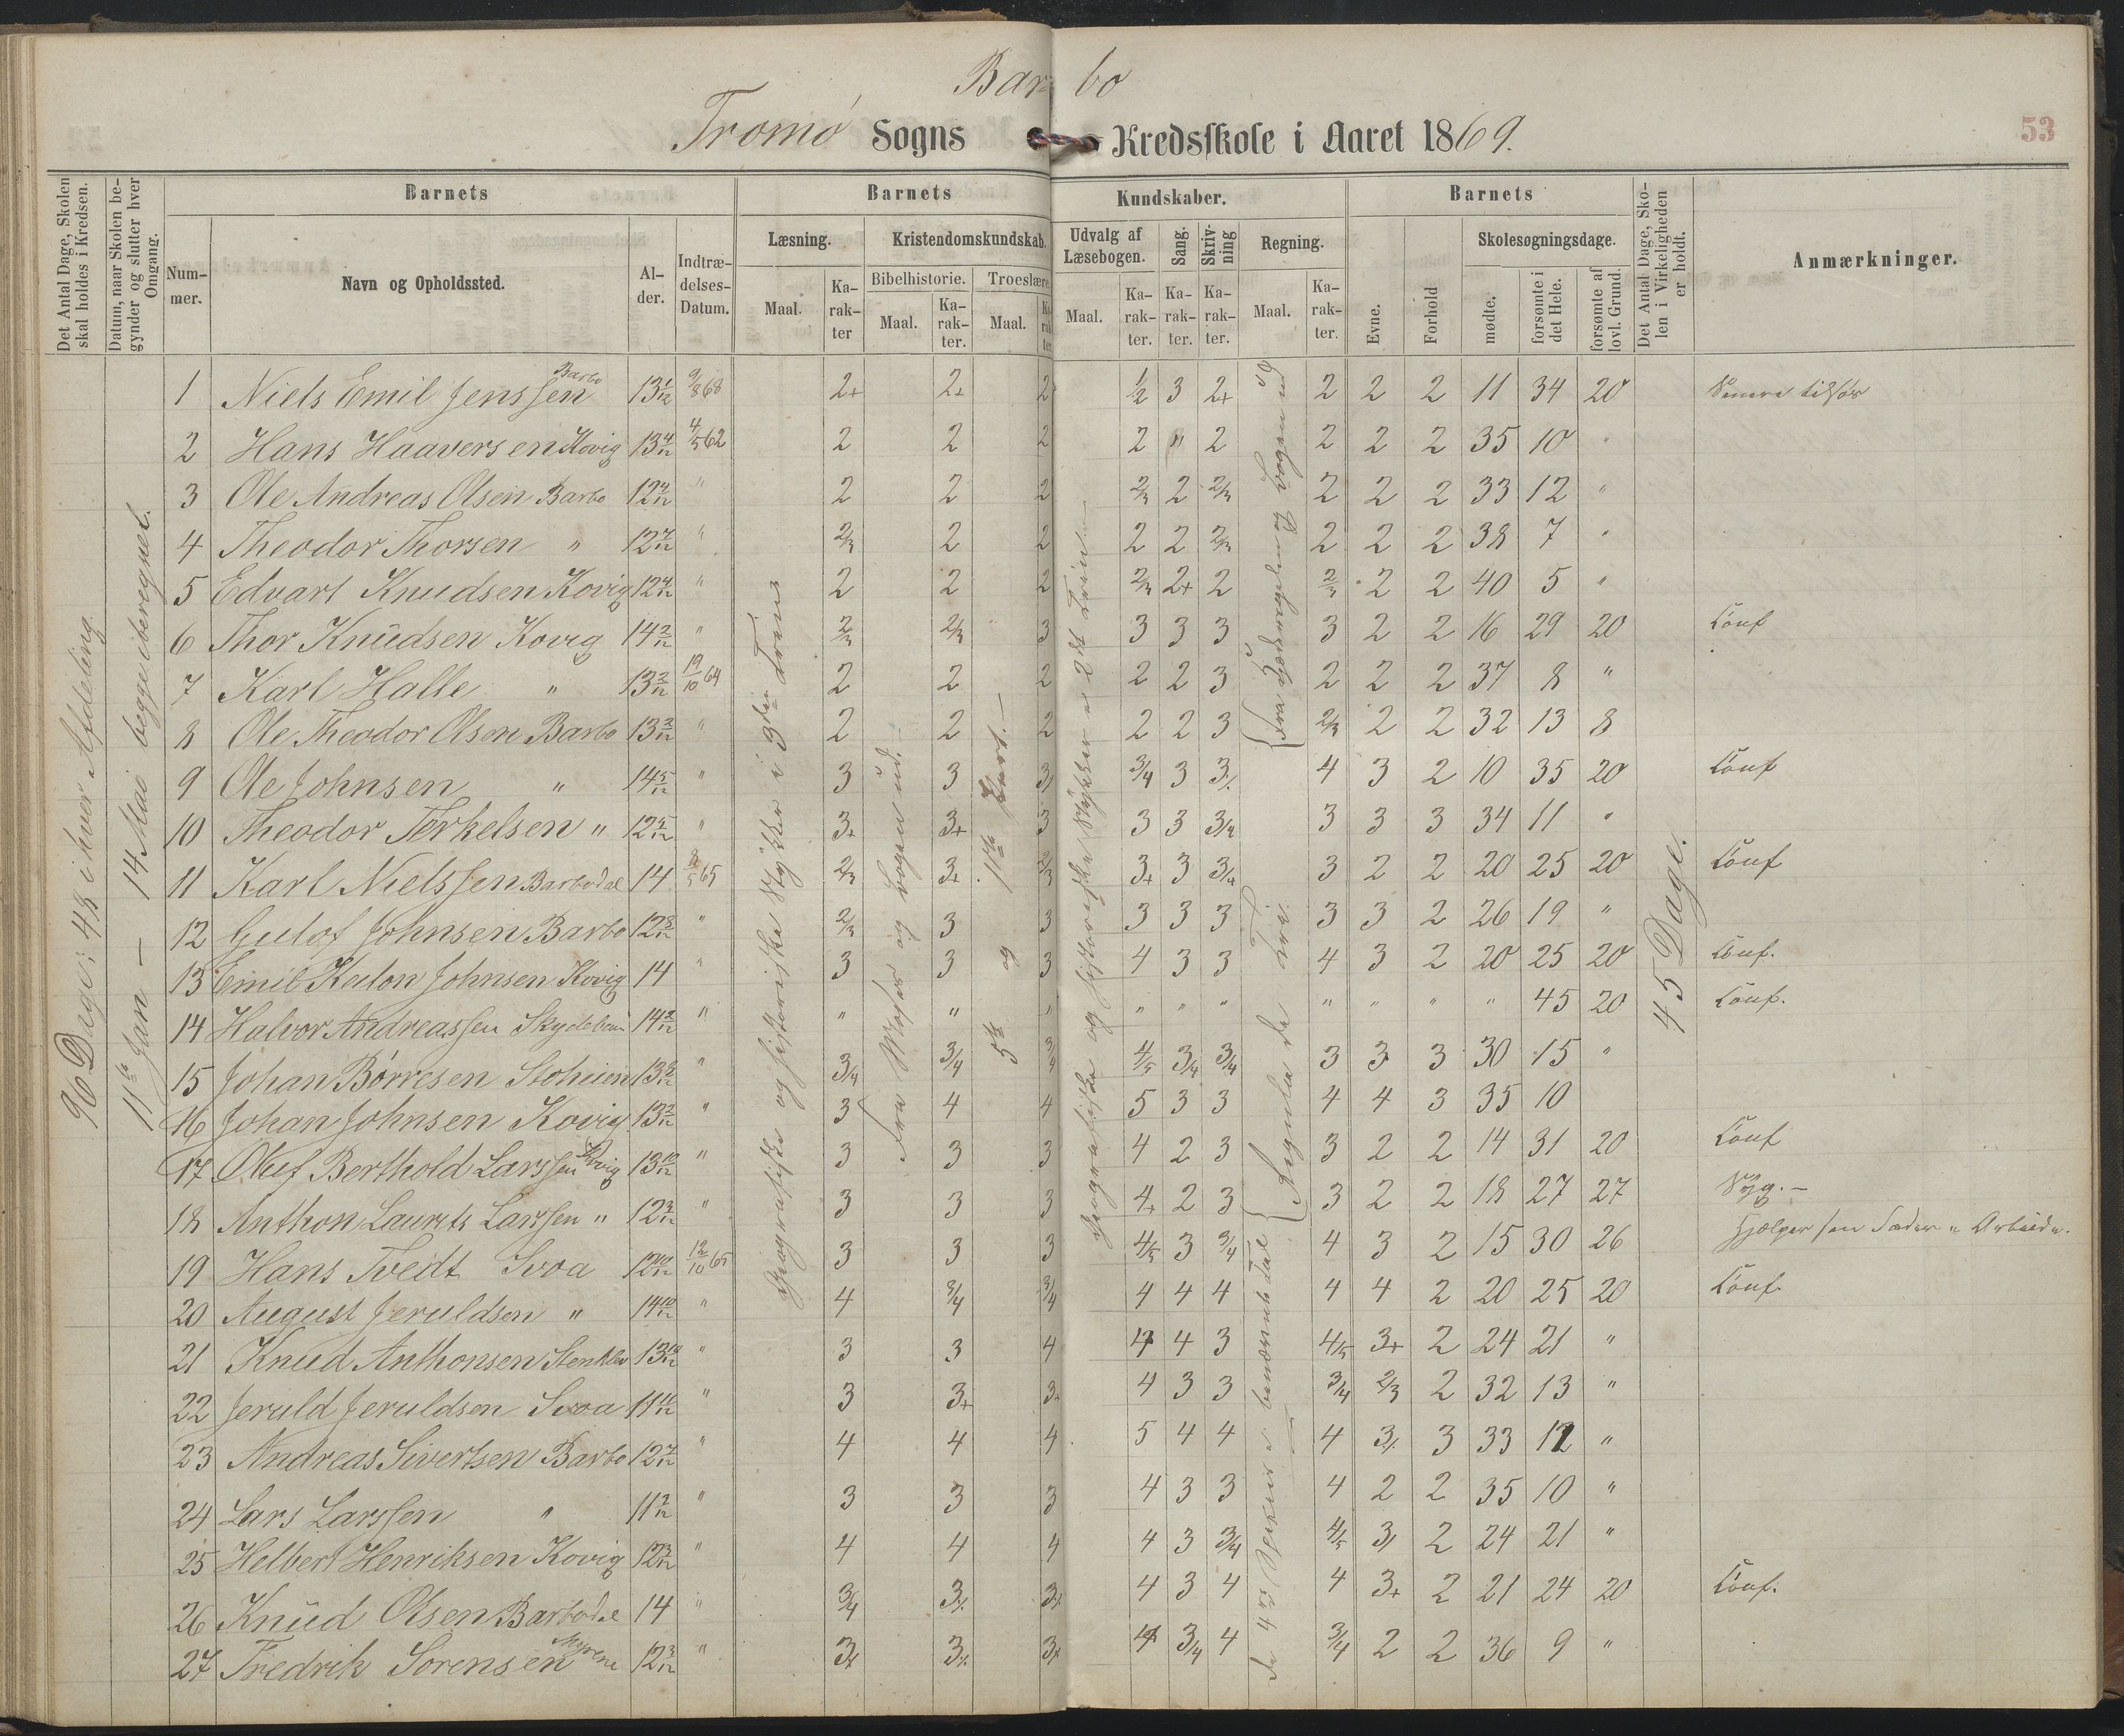 Barbo
Tromø Sogns Kredsskole i Aaret 1869.
53
Det Antal Dage, Skolen skal holdes i Kredsen.
Datum, naar Skolen begynder og slutter hver Omgang.
Barnets
Nummer.
Navn og Opholdssted.
Alder.
Indtrædelses-Datum.
Barnets Kundskaber.
Læsning.
Maal.
Karakter
Kristendomskundskab.
Bibelhistorie.
Maal.
Karakter.
Troeslære.
Maal.
Karakter
Udvalg af Læsebogen.
Maal.
Karakter.
Sang.
Karakter.
Skrivning
Karakter.
Regning.
Maal.
Karakter.
Barnets
Evne.
Forhold
Skolesøgningsdage.
mødte.
forsømte i det Hele.
forsømte af lovl. Grund.
Det Antal Dage, Skolen i Virkeligheden er holdt.
Anmærkninger.
96 Dage: 48 i hver Afdeling.
11te Jan – 14 Mai begge iberegnet.
Geografiske og historiske Stykker i 3die Trin
Fra Moses og Bogen ud. –
5te og 11te Part. –
Geografiske og historiske Stykker i 2det Trin –
Fra og Bogen ud
Regula de Tri.
De 4 Species i benævnte Tal
45 Dage.
1 Niels Emil Jenssen Barbo 13 1/12 9/8 68 2+ 2+ 2 1/2 3 2+ 2 2 2 11 34 20
2 Hans Haaversen Kovig 13 4/12 4/5 62 2 2 2 2 " 2 2 2 2 35 10 "
3 Ole Andreas Olsen Barbo 12 4/12 " 2 2 2 2/3 2 2/3 2 2 2 33 12 "
4 Theodor Thorsen " 12 7/12 " 2/3 2 2 2 2 2/3 2 2 2 38 7 "
5 Edvart Knudsen Kovig 12 4/12 " 2 2 2 2/3 2+ 2 2/3 2 2 40 5 "
6 Thor Knudsen Kovig 14 2/12 " 2/3 2/3 3 3 3 3 3 2 2 16 29 20 Conf
7 Karl Halle " 13 2/12 19/10 64 2 2 2 2 2 3 2 2 2 37 8 "
8 Ole Theodor Olsen Barbo 13 3/12 " 2 2 2 2 2 3 2/3 2 2 32 13 8
9 Ole Johnsen " 14 5/12 " 3 3 3 3/4 3 3 4 3 2 10 35 20 Conf
10 Theodor Terkelsen " 12 5/12 " 3+ 3+ 3 3 3 3/4 3 3 3 34 11 "
11 Karl Nielssen Barbodal 14 8/5 65 2/3 3+ 2/3 3+ 3 3/4 3 2 2 20 25 20 Conf
12 Gulof Johnsen Barbo 12 3/12 " 2/3 3 3 3 3 3 3 3 2 26 19 "
13 Emil Johnsen Kovig 14 " 3 3 3 4 3 3 4 3 2 20 25 20 Conf.
14 Halvor Andreassen 14 2/12 " " " " " " " " " " " 45 20 Conf.
15 Johan Børresen 13 " 3/4 3/4 3/4 4/5 3/4 3/4 3 3 3 30 15 "
16 Johan Johnsen Kovig 13 2/12 " 3 4 4 5 3 3 4 4 3 35 10
17 Oluf Berthold Larssen Kovig 13 10/12 " 3 3 3 4 2 3 3 2 2 14 31 20 Conf
18 Anthon Laurits Larssen " 12 3/12 " 3 3 3 4+ 2 3 3 2 2 18 27 27 Syg. –
19 Hans Tvedt Svoa 12 10/12 12/10 65 3 3 3 4/5 3 3/4 4 3 2 15 30 26 Hjælper sin Fader i Arbeide.
20 August Jeruldsen " 14 10/12 " 4 3/4 3/4 4 4 4 4 4 2 20 25 20 Conf.
21 Knud Anthonsen Stenklev 13 10/12 " 3 3 4 4 4 3 4/5 3+ 2 24 21 "
22 Jeruld Jeruldsen Svoa 11 " 3 3+ 3+ 4 3 3 3/4 2/3 2 32 13 "
23 Andreas Sivertsen Barbo 12 7/12 " 4 4 4 5 4 4 4 3 3 33 12 "
24 Lars Larssen " 11 2/12 " 3 3 3 4 3 3 4 2 2 35 10 "
25 Helbert Henriksen Kovig 12 " 4 4 4 4 3 3/4 4/5 3 2 24 21 "
26 Knud Olsen Barbodal 14 " 3/4 3 3 4 3 4 4 3+ 2 21 24 20 Conf.
27 Fredrik Sørensen Myrene 12 3/12 " 3 3 3 4 3/4 4 3/4 2 2 36 9 "